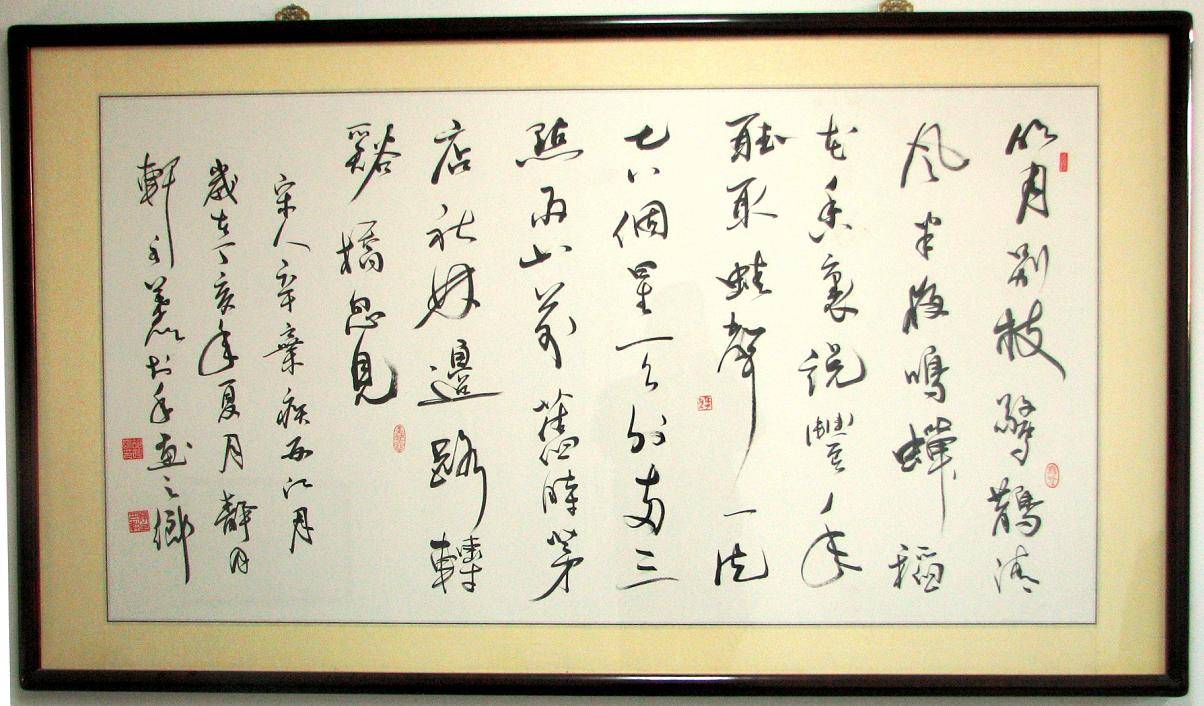 明月別枝驚鵲清
風半夜鳴蟬稻
花香裏說豐年
聽取蛙聲一片
七八個星天外兩三
點雨山前舊時茅
店社林邊路轉
谿橋忽見
宋人辛棄疾西江月
歲在丁亥年夏月靜月
軒主於年畫之鄉